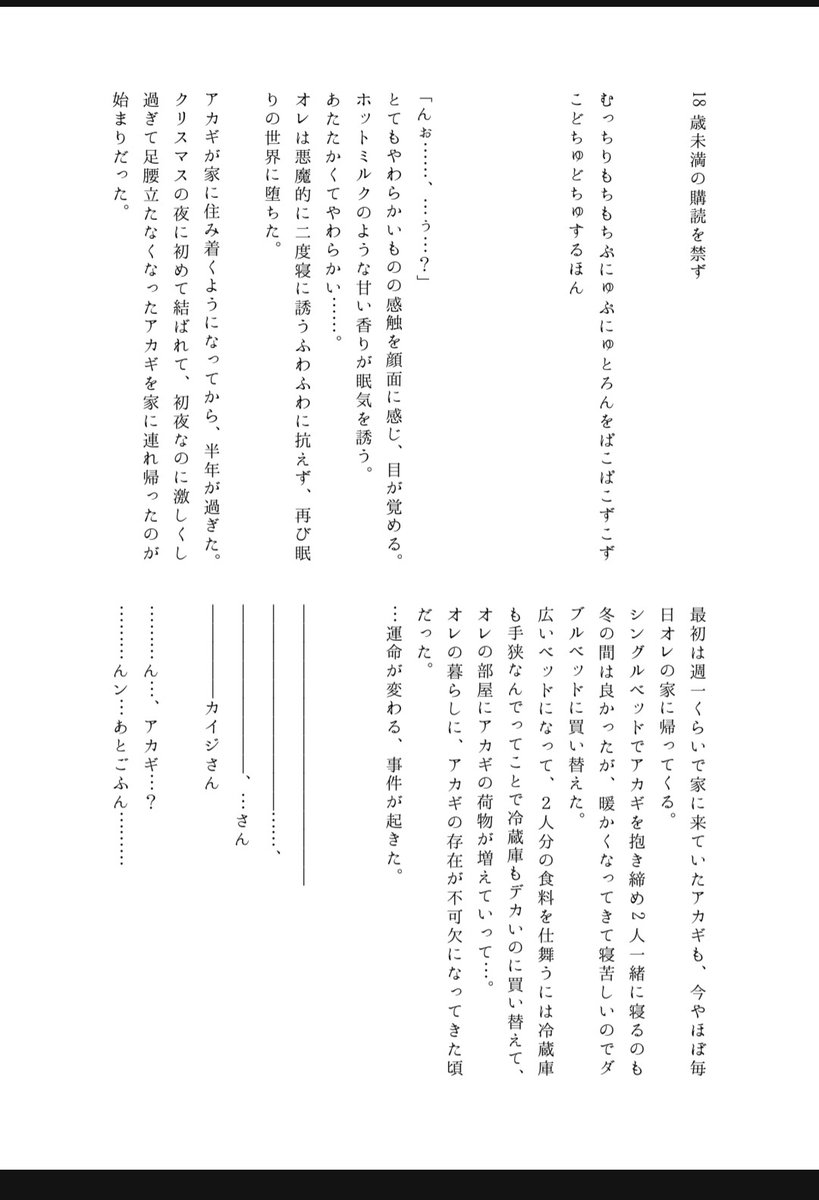 18歳未満の購読を禁ず
むっちりもちもちぷにゅぷにゅとろんをばこばこずこず
こどちゅどちゅするほん
「んぉ……、…ぅ…？」
とてもやわらかいものの感触を顔面に感じ、目が覚める。
ホットミルクのような甘い香りが眠気を誘う。
あたたかくてやわらかい……。
オレは悪魔的に二度寝に誘うふわふわに抗えず、再び眠
りの世界に堕ちた。
アカギが家に住み着くようになってから、半年が過ぎた。
クリスマスの夜に初めて結ばれて、初夜なのに激しくし
過ぎて足腰立たなくなったアカギを家に連れ帰ったのが
始まりだった。
最初は週一くらいで家に来ていたアカギも、今やほぼ毎
日オレの家に帰ってくる。
シングルベッドでアカギを抱き締め2人一緒に寝るのも
冬の間は良かったが、暖かくなってきて寝苦しいのでダ
ブルベッドに買い替えた。
広いベッドになって、2人分の食料を仕舞うには冷蔵庫
も手狭なんでってことで冷蔵庫もデカいのに買い替えて、
オレの部屋にアカギの荷物が増えていって…。
オレの暮らしに、アカギの存在が不可欠になってきた頃
だった。
…運命が変わる、事件が起きた。
―――――――――――――――
―――――――――――……、
―――――――――、…さん
―――――カイジさん
…………ん…、アカギ…？
…………んン…あとごふん………